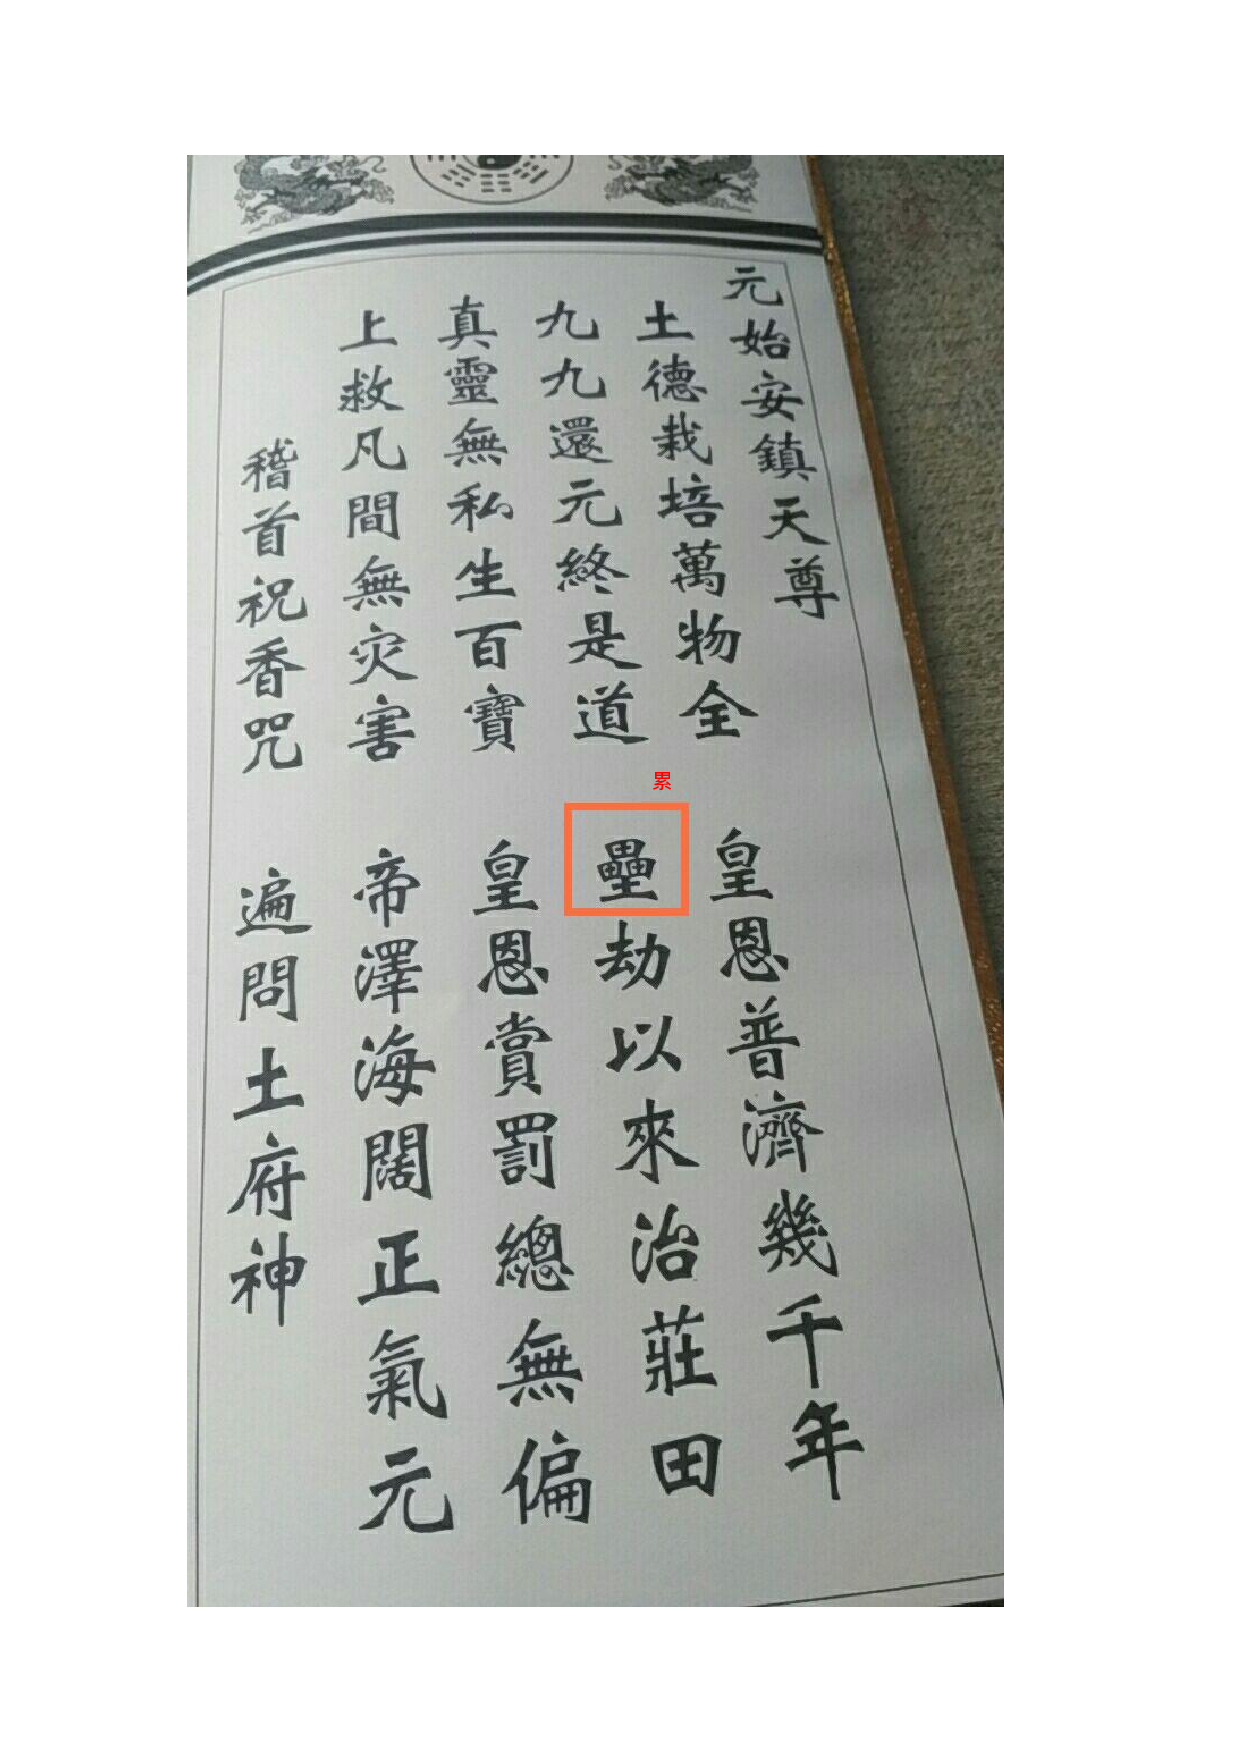 元始安鎮天尊
土德栽培萬物全
皇恩普濟幾千年
九九還元終是道
壘劫以來治莊田
真靈無私生百寶
皇恩賞罰總無偏
上救凡間無灾害
帝澤海闊正氣元
稽首祝香咒
遍問土府神
累